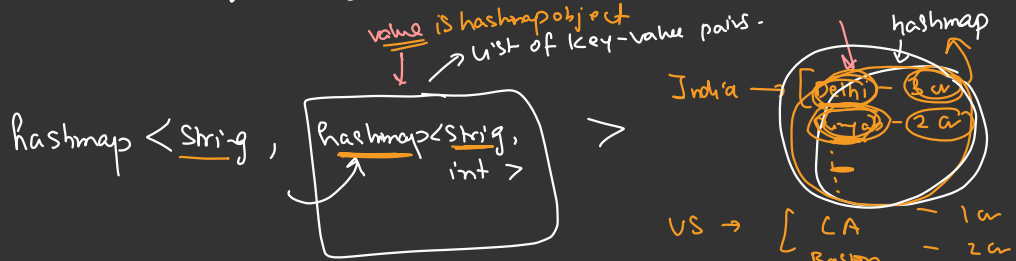 value is hashmap object
→ list of key-value pairs.
hashmap < String , hashmap < String, int > >
hashmap
India → [ Delhi - 3 cr
- 2 cr
US → [ CA - 1 cr
- 2 cr